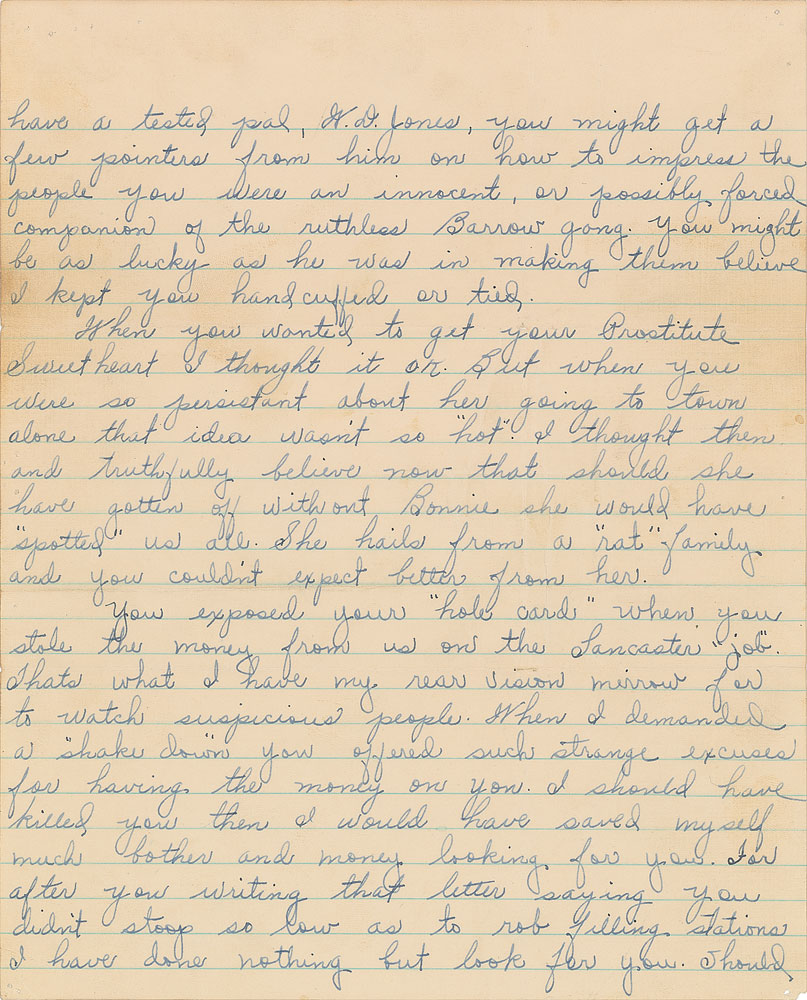 have a tested pal, W.D. Jones, you might get a
few pointers from him on how to impress the
people you were an innocent, or possibly forced
companion of the ruthless Barrow gang. You might
be as lucky as he was in making them believe
I kept you handcuffed or tied.
When you wanted to get your Prostitute
Sweetheart I thought it ok. But when you
were so persistant about her going to town
alone that idea wasn't so "hot". I thought then
and truthfully believe now that should she
have gotten off without Bonnie she would have
"spotted" us all. She hails from a "rat" family
and you couldn't expect better from her.
You exposed your "hole card" when you
stole the money from us on the Lancaster "job".
Thats what I have my rear vision mirrow for
to watch suspicious people. When I demanded
a "shake down" you offered such strange excuses
for having the money on you. I should have
killed you then I would have saved myself
much bother and money looking for you. For
after you writing that letter saying you
didn't stoop so low as to rob filling stations
I have done nothing but look for you. Should